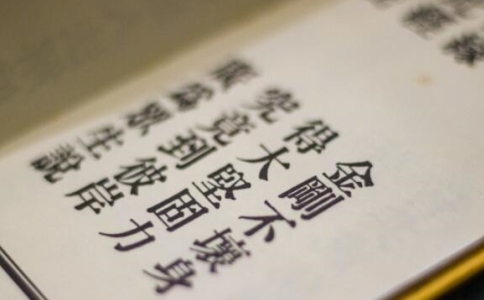 緣
經
金剛不壞身
得大堅固力
究竟到彼岸
廣為眾生說